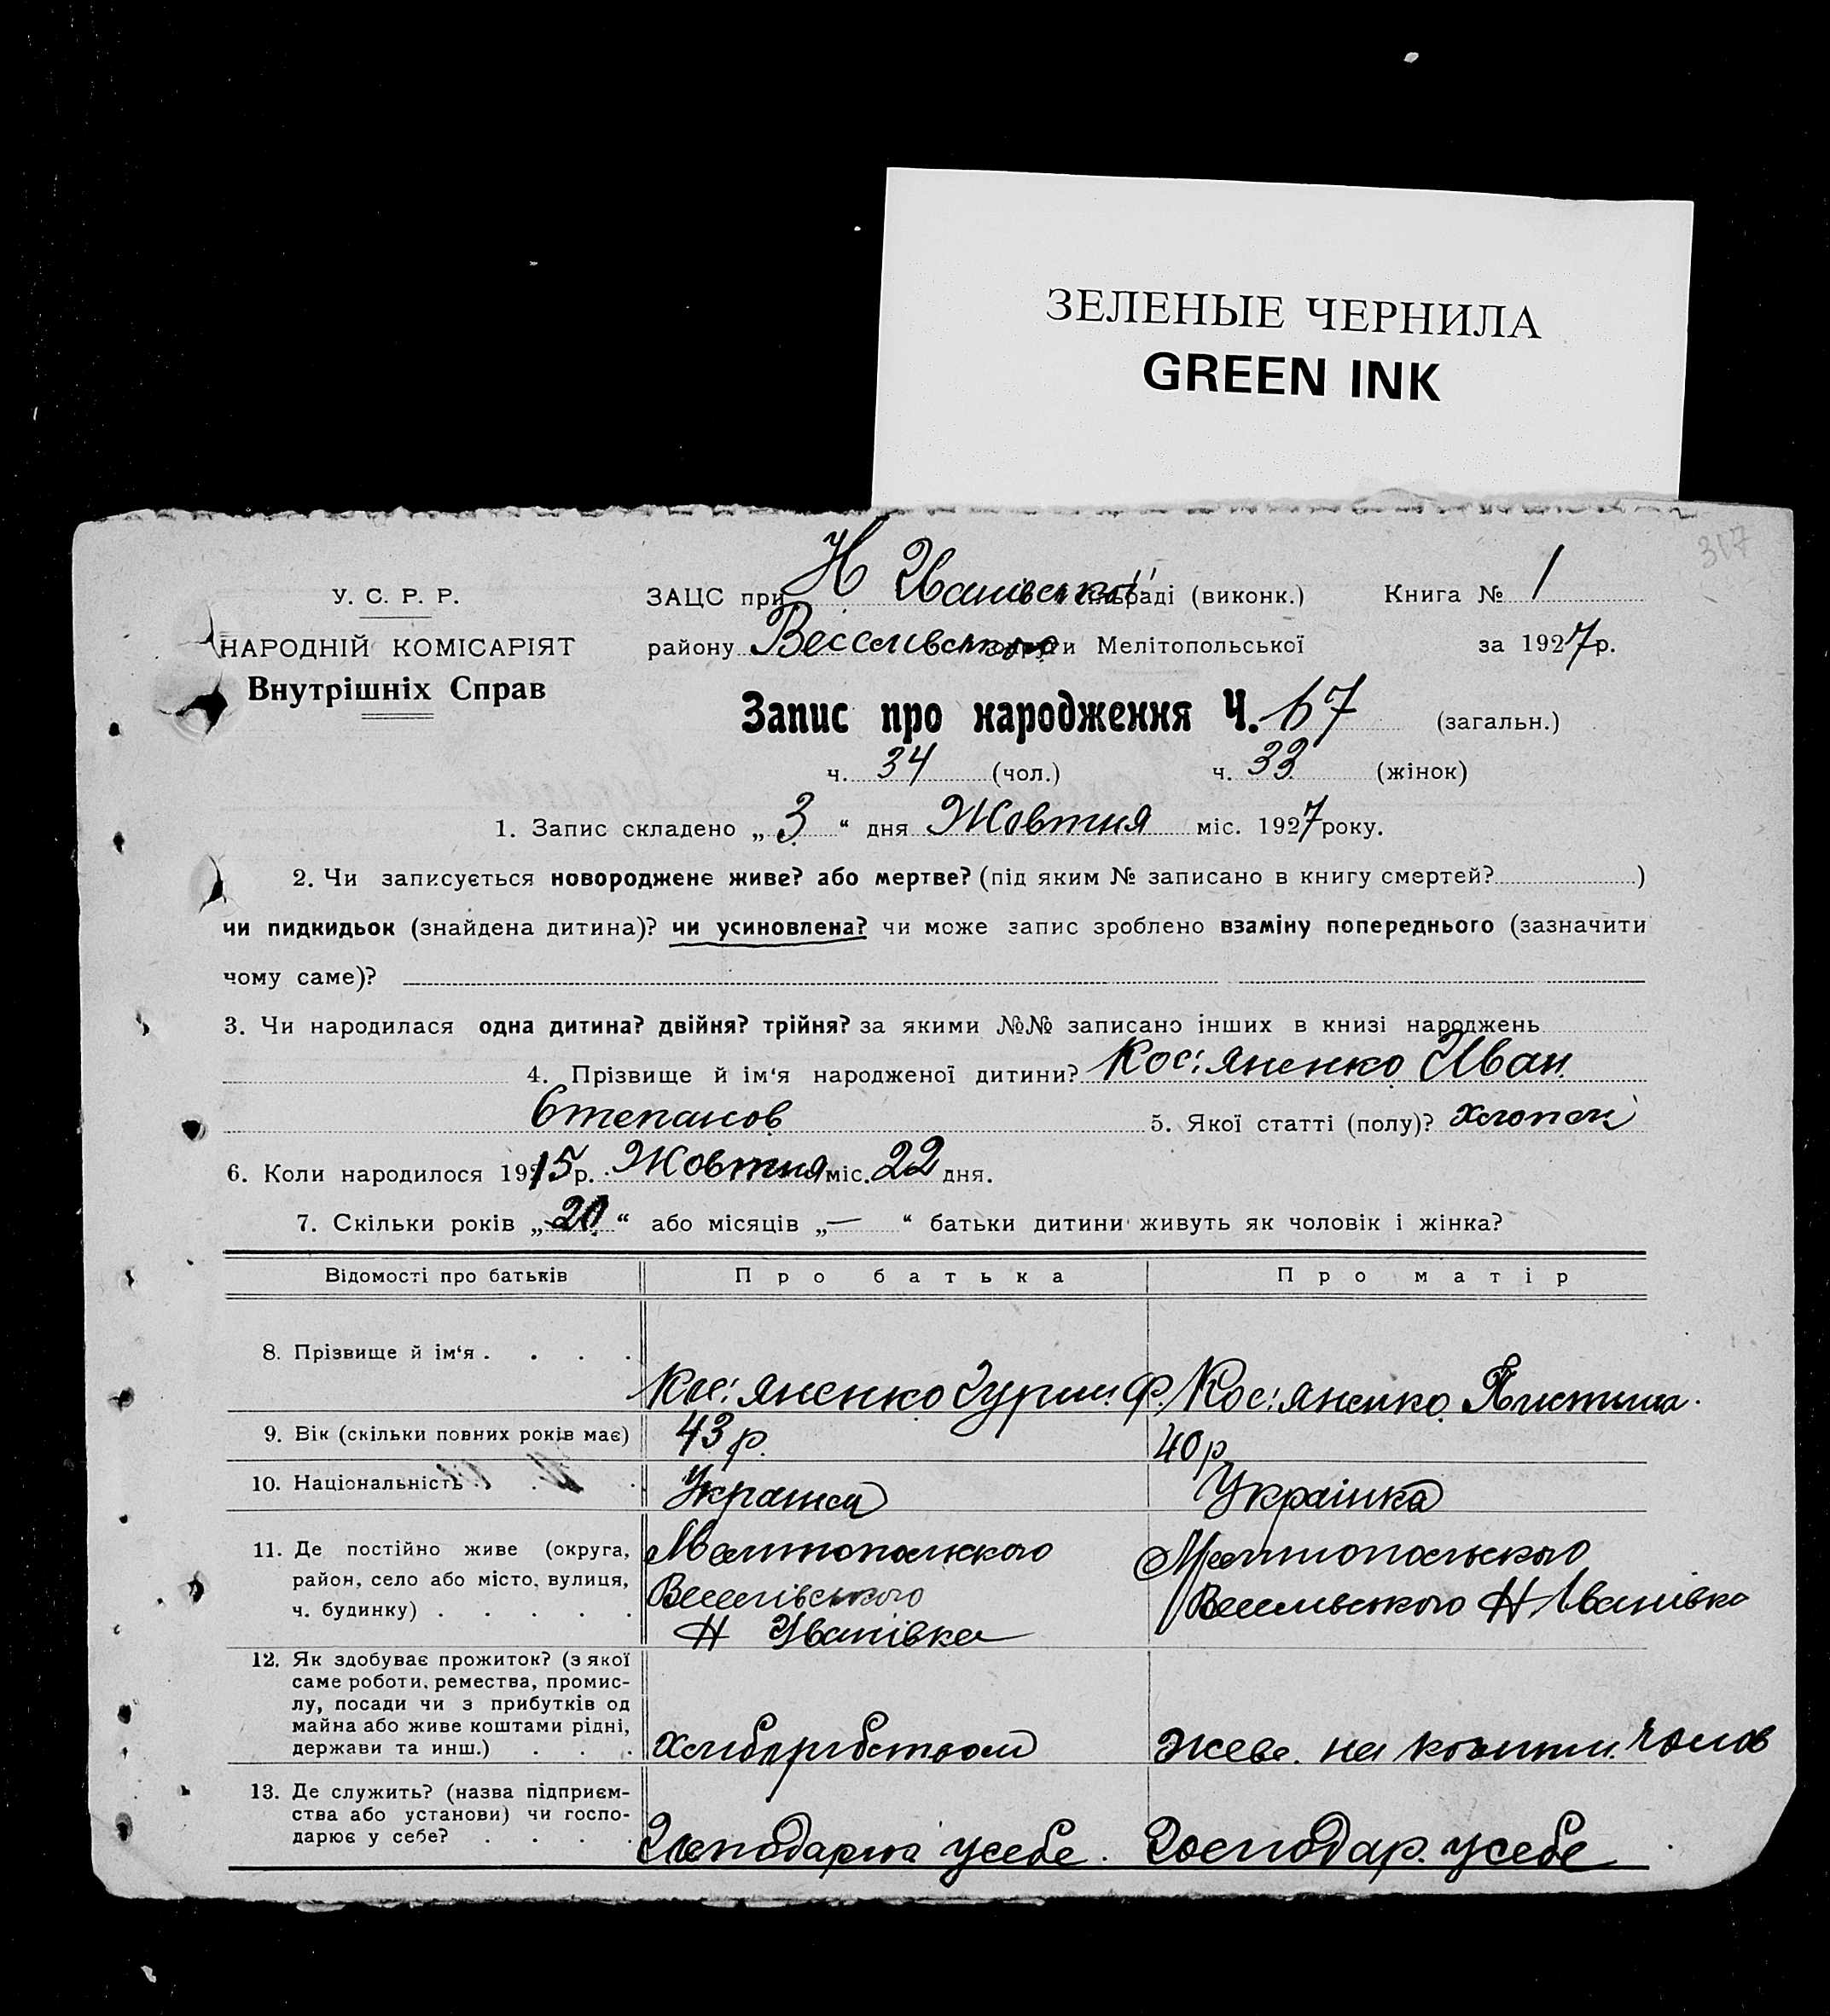 ЗЕЛЕНЫЕ ЧЕРНИЛА
GREEN INK
317
У. С. Р. Р.
НАРОДНІЙ КОМІСАРІЯТ
Внутрішніх Справ
ЗАЦС при Н Іванівській сільраді (виконк.) Книга № 1
району Веселівського округи Мелітопольської за 1927 р.
Запис про народження Ч. 67 (загальн.)
ч. 34 (чол.) ч. 33 (жінок)
1. Запис складено „3“ дня Жовтня міс. 1927 року.
2. Чи записується новороджене живе? або мертве? (під яким № записано в книгу смертей? )
чи пидкидьок (знайдена дитина)? чи усиновлена? чи може запис зроблено взаміну попереднього (зазначити
чому саме)?
3. Чи народилася одна дитина? двійня? трійня? за якими №№ записано інших в книзі народжень
4. Прізвище й ім‘я народженої дитини? Кос:яненко Иван
Степанов 5. Якої статті (полу)? хлопец
6. Коли народилося 1915 р. Жовтня міс. 22 дня.
7. Скільки років „20“ або місяців „—“ батьки дитини живуть як чоловік і жінка?
Відомості про батьків Про батька Про матір
8. Прізвище й ім‘я . . . . Кос:яненко Ф. Кос:яненко
9. Вік (скільки повних років має) 43 р. 40 р
10. Національність . . . Українка
11. Де постійно живе (округа, район, село або місто, вулиця, ч. будинку) . . . . .
Мелитопольского Мелитопольского
Веселівського Веселівського Н Іванівка
Н Іванівка
12. Як здобуває прожиток? (з якої
саме роботи, ремества, промис-
лу, посади чи з прибутків од
майна або живе коштами рідні,
держави та инш.) . . . живе на кошти чолов
13. Де служить? (назва підприєм-
ства або установи) чи госпо-
дарює у себе? . . . . Господарює усебе. Господар. усебе